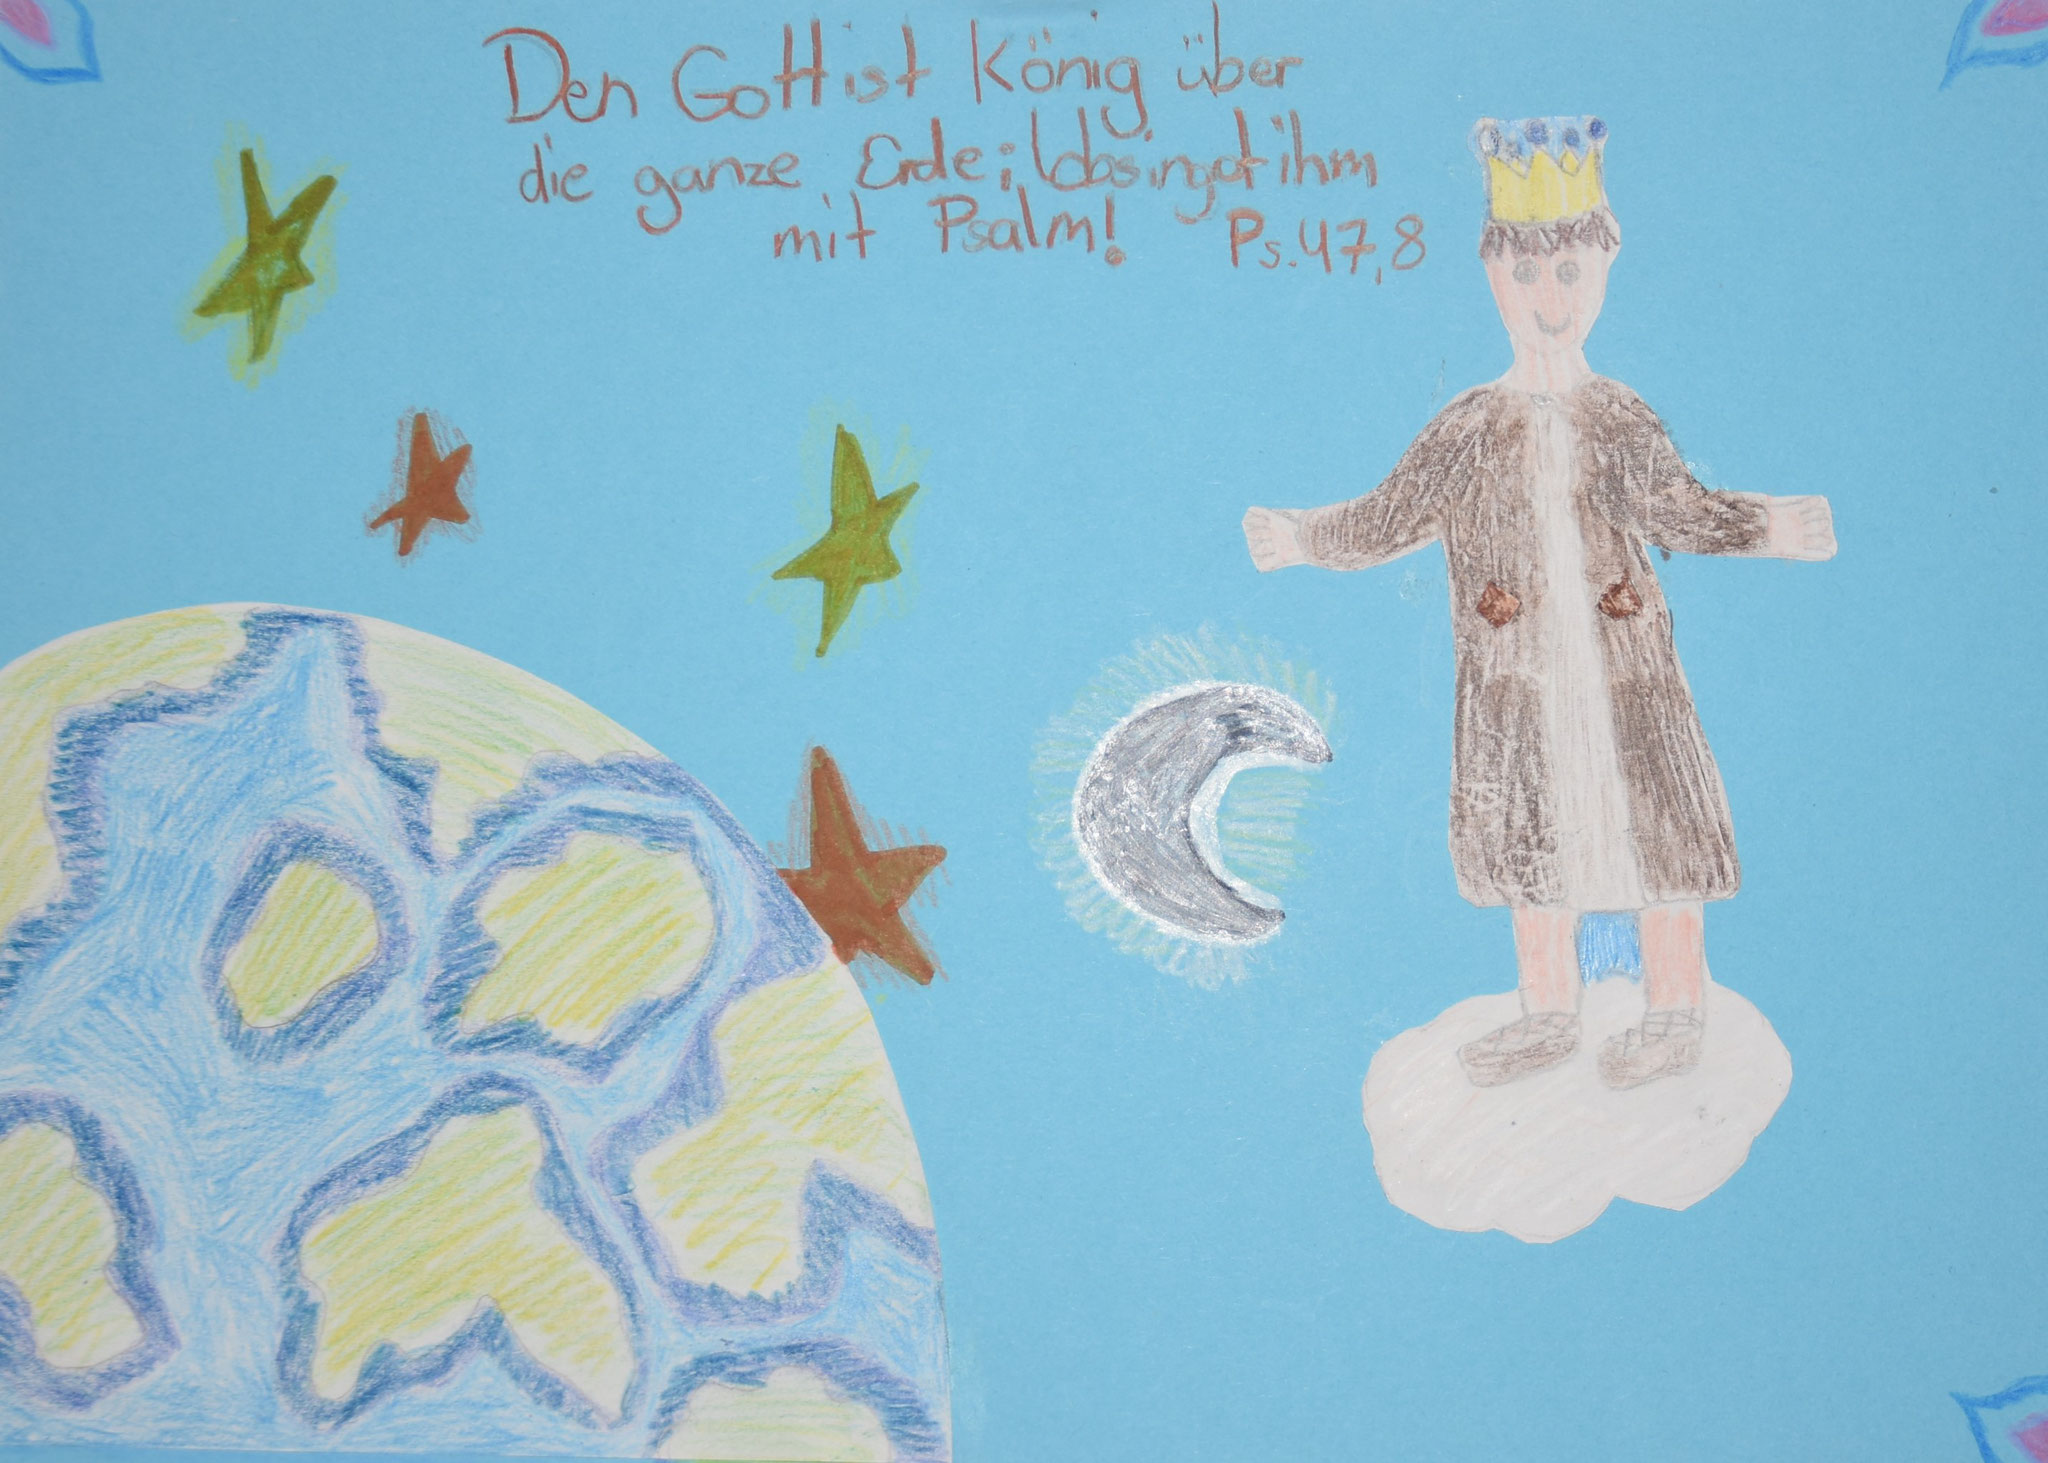 Den Gott ist König über
die ganze Erde; lobsinget ihm
mit Psalm! Ps. 47,8